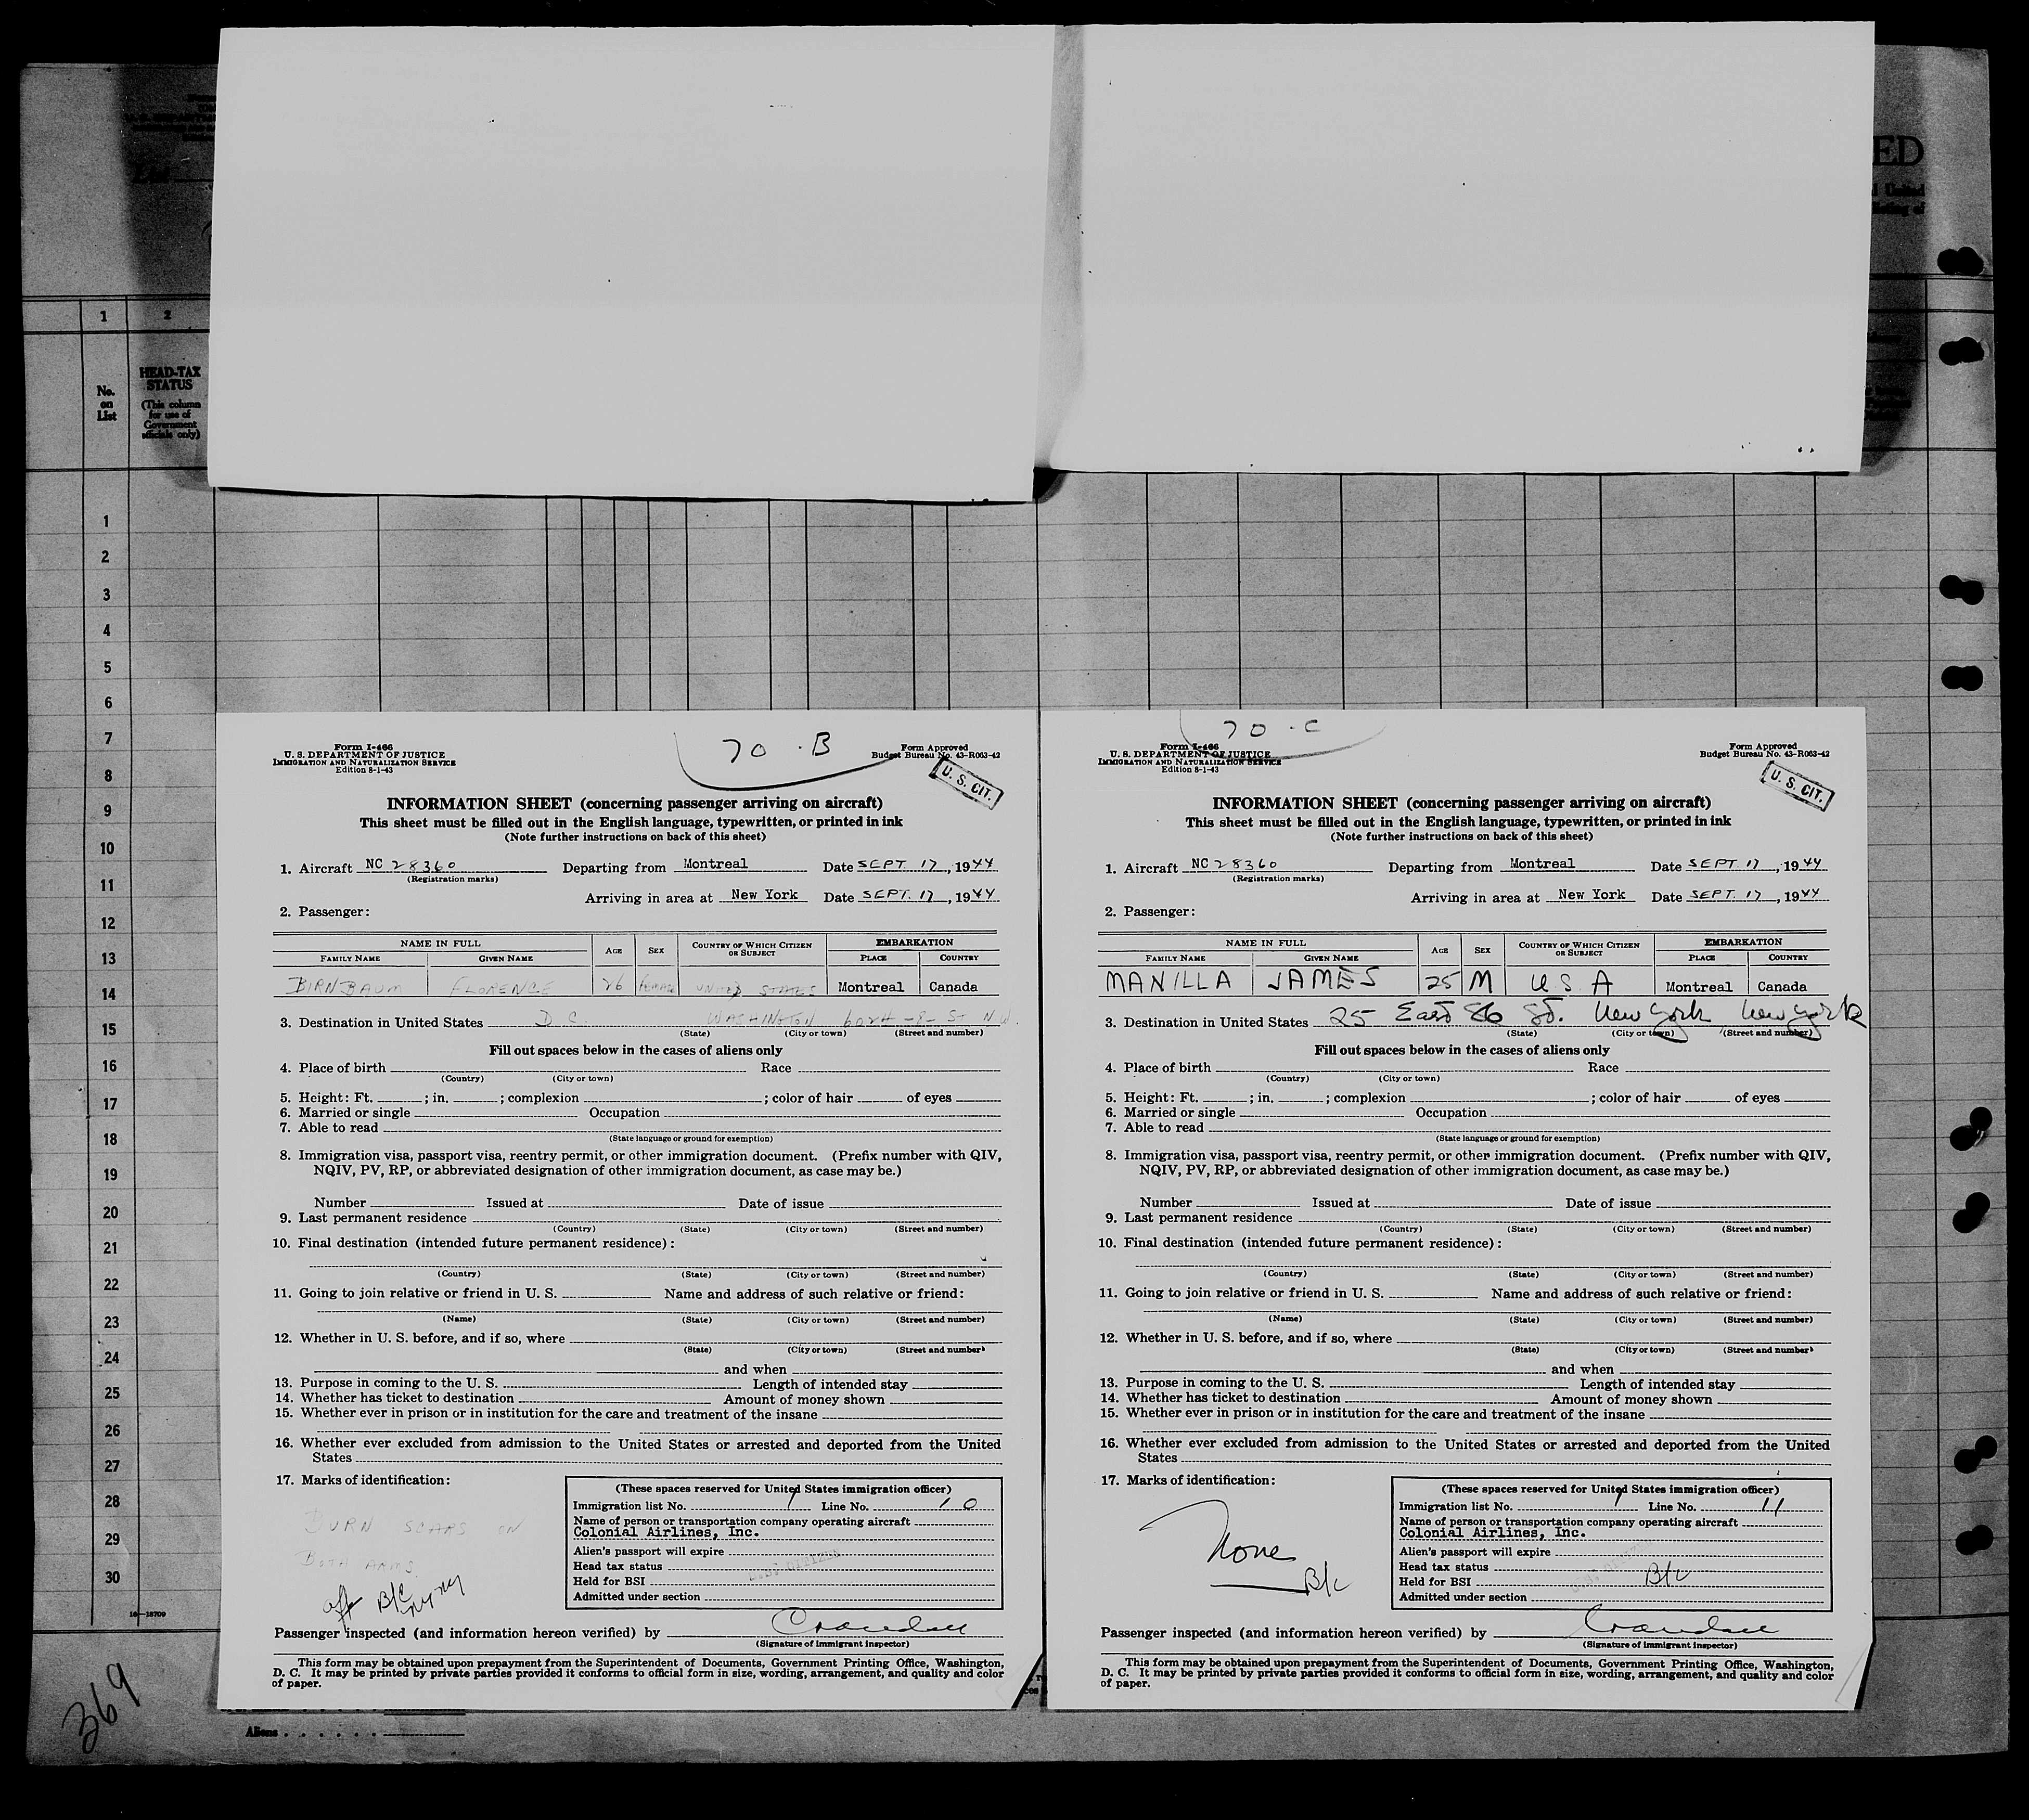 ED
1 2
No. on List
HEAD-TAX STATUS
(This column for use of Government officials only)
1
2
3
4
5
6
7
8
9
10
11
12
13
14
15
16
17
18
19
20
21
22
23
24
25
26
27
28
29
30
16—18709
369
Aliens
70 - B
Form I-466
U. S. DEPARTMENT OF JUSTICE
IMMIGRATION AND NATURALIZATION SERVICE
Edition 8-1-43
Form Approved
Budget Bureau No. 43-R063-42
U. S. CIT.
INFORMATION SHEET (concerning passenger arriving on aircraft)
This sheet must be filled out in the English language, typewritten, or printed in ink
(Note further instructions on back of this sheet)
1. Aircraft NC 28360 Departing from Montreal Date SEPT. 17, 1944
(Registration marks)
Arriving in area at New York Date SEPT. 17, 1944
2. Passenger:
NAME IN FULL AGE SEX COUNTRY OF WHICH CITIZEN OR SUBJECT EMBARKATION
FAMILY NAME GIVEN NAME PLACE COUNTRY
BIRNBAUM FLORENCE 26 FEMALE UNITED STATES Montreal Canada
3. Destination in United States D C. WASHINGTON -8- ST NW
(State) (City or town) (Street and number)
Fill out spaces below in the cases of aliens only
4. Place of birth Race
(Country) (City or town)
5. Height: Ft. ; in. ; complexion ; color of hair of eyes
6. Married or single Occupation
7. Able to read
(State language or ground for exemption)
8. Immigration visa, passport visa, reentry permit, or other immigration document. (Prefix number with QIV,
NQIV, PV, RP, or abbreviated designation of other immigration document, as case may be.)
Number Issued at Date of issue
9. Last permanent residence
(Country) (State) (City or town) (Street and number)
10. Final destination (intended future permanent residence):
(Country) (State) (City or town) (Street and number)
11. Going to join relative or friend in U. S. Name and address of such relative or friend:
(Name) (State) (City or town) (Street and number)
12. Whether in U. S. before, and if so, where
(State) (City or town) (Street and number)
and when
13. Purpose in coming to the U. S. Length of intended stay
14. Whether has ticket to destination Amount of money shown
15. Whether ever in prison or in institution for the care and treatment of the insane
16. Whether ever excluded from admission to the United States or arrested and deported from the United
States
17. Marks of identification:
BURN SCARS ON
BOTH ARMS
aff B/C
(These spaces reserved for United States immigration officer)
Immigration list No. 1 Line No. 10
Name of person or transportation company operating aircraft
Colonial Airlines, Inc.
Alien's passport will expire
Head tax status
Held for BSI
Admitted under section
Passenger inspected (and information hereon verified) by Crandall
(Signature of immigrant inspector)
This form may be obtained upon prepayment from the Superintendent of Documents, Government Printing Office, Washington,
D. C. It may be printed by private parties provided it conforms to official form in size, wording, arrangement, and quality and color
of paper.
70 - C
Form I-466
U. S. DEPARTMENT OF JUSTICE
IMMIGRATION AND NATURALIZATION SERVICE
Edition 8-1-43
Form Approved
Budget Bureau No. 43-R063-42
U. S. CIT.
INFORMATION SHEET (concerning passenger arriving on aircraft)
This sheet must be filled out in the English language, typewritten, or printed in ink
(Note further instructions on back of this sheet)
1. Aircraft NC 28360 Departing from Montreal Date SEPT. 17, 1944
(Registration marks)
Arriving in area at New York Date SEPT. 17, 1944
2. Passenger:
NAME IN FULL AGE SEX COUNTRY OF WHICH CITIZEN OR SUBJECT EMBARKATION
FAMILY NAME GIVEN NAME PLACE COUNTRY
MANILLA JAMES 25 M U S A Montreal Canada
3. Destination in United States 25 East 86 St. New York New York
(State) (City or town) (Street and number)
Fill out spaces below in the cases of aliens only
4. Place of birth Race
(Country) (City or town)
5. Height: Ft. ; in. ; complexion ; color of hair of eyes
6. Married or single Occupation
7. Able to read
(State language or ground for exemption)
8. Immigration visa, passport visa, reentry permit, or other immigration document. (Prefix number with QIV,
NQIV, PV, RP, or abbreviated designation of other immigration document, as case may be.)
Number Issued at Date of issue
9. Last permanent residence
(Country) (State) (City or town) (Street and number)
10. Final destination (intended future permanent residence):
(Country) (State) (City or town) (Street and number)
11. Going to join relative or friend in U. S. Name and address of such relative or friend:
(Name) (State) (City or town) (Street and number)
12. Whether in U. S. before, and if so, where
(State) (City or town) (Street and number)
and when
13. Purpose in coming to the U. S. Length of intended stay
14. Whether has ticket to destination Amount of money shown
15. Whether ever in prison or in institution for the care and treatment of the insane
16. Whether ever excluded from admission to the United States or arrested and deported from the United
States
17. Marks of identification:
None
B/C
(These spaces reserved for United States immigration officer)
Immigration list No. 1 Line No. 11
Name of person or transportation company operating aircraft
Colonial Airlines, Inc.
Alien's passport will expire
Head tax status
Held for BSI B/C
Admitted under section
Passenger inspected (and information hereon verified) by Crandall
(Signature of immigrant inspector)
This form may be obtained upon prepayment from the Superintendent of Documents, Government Printing Office, Washington,
D. C. It may be printed by private parties provided it conforms to official form in size, wording, arrangement, and quality and color
of paper.